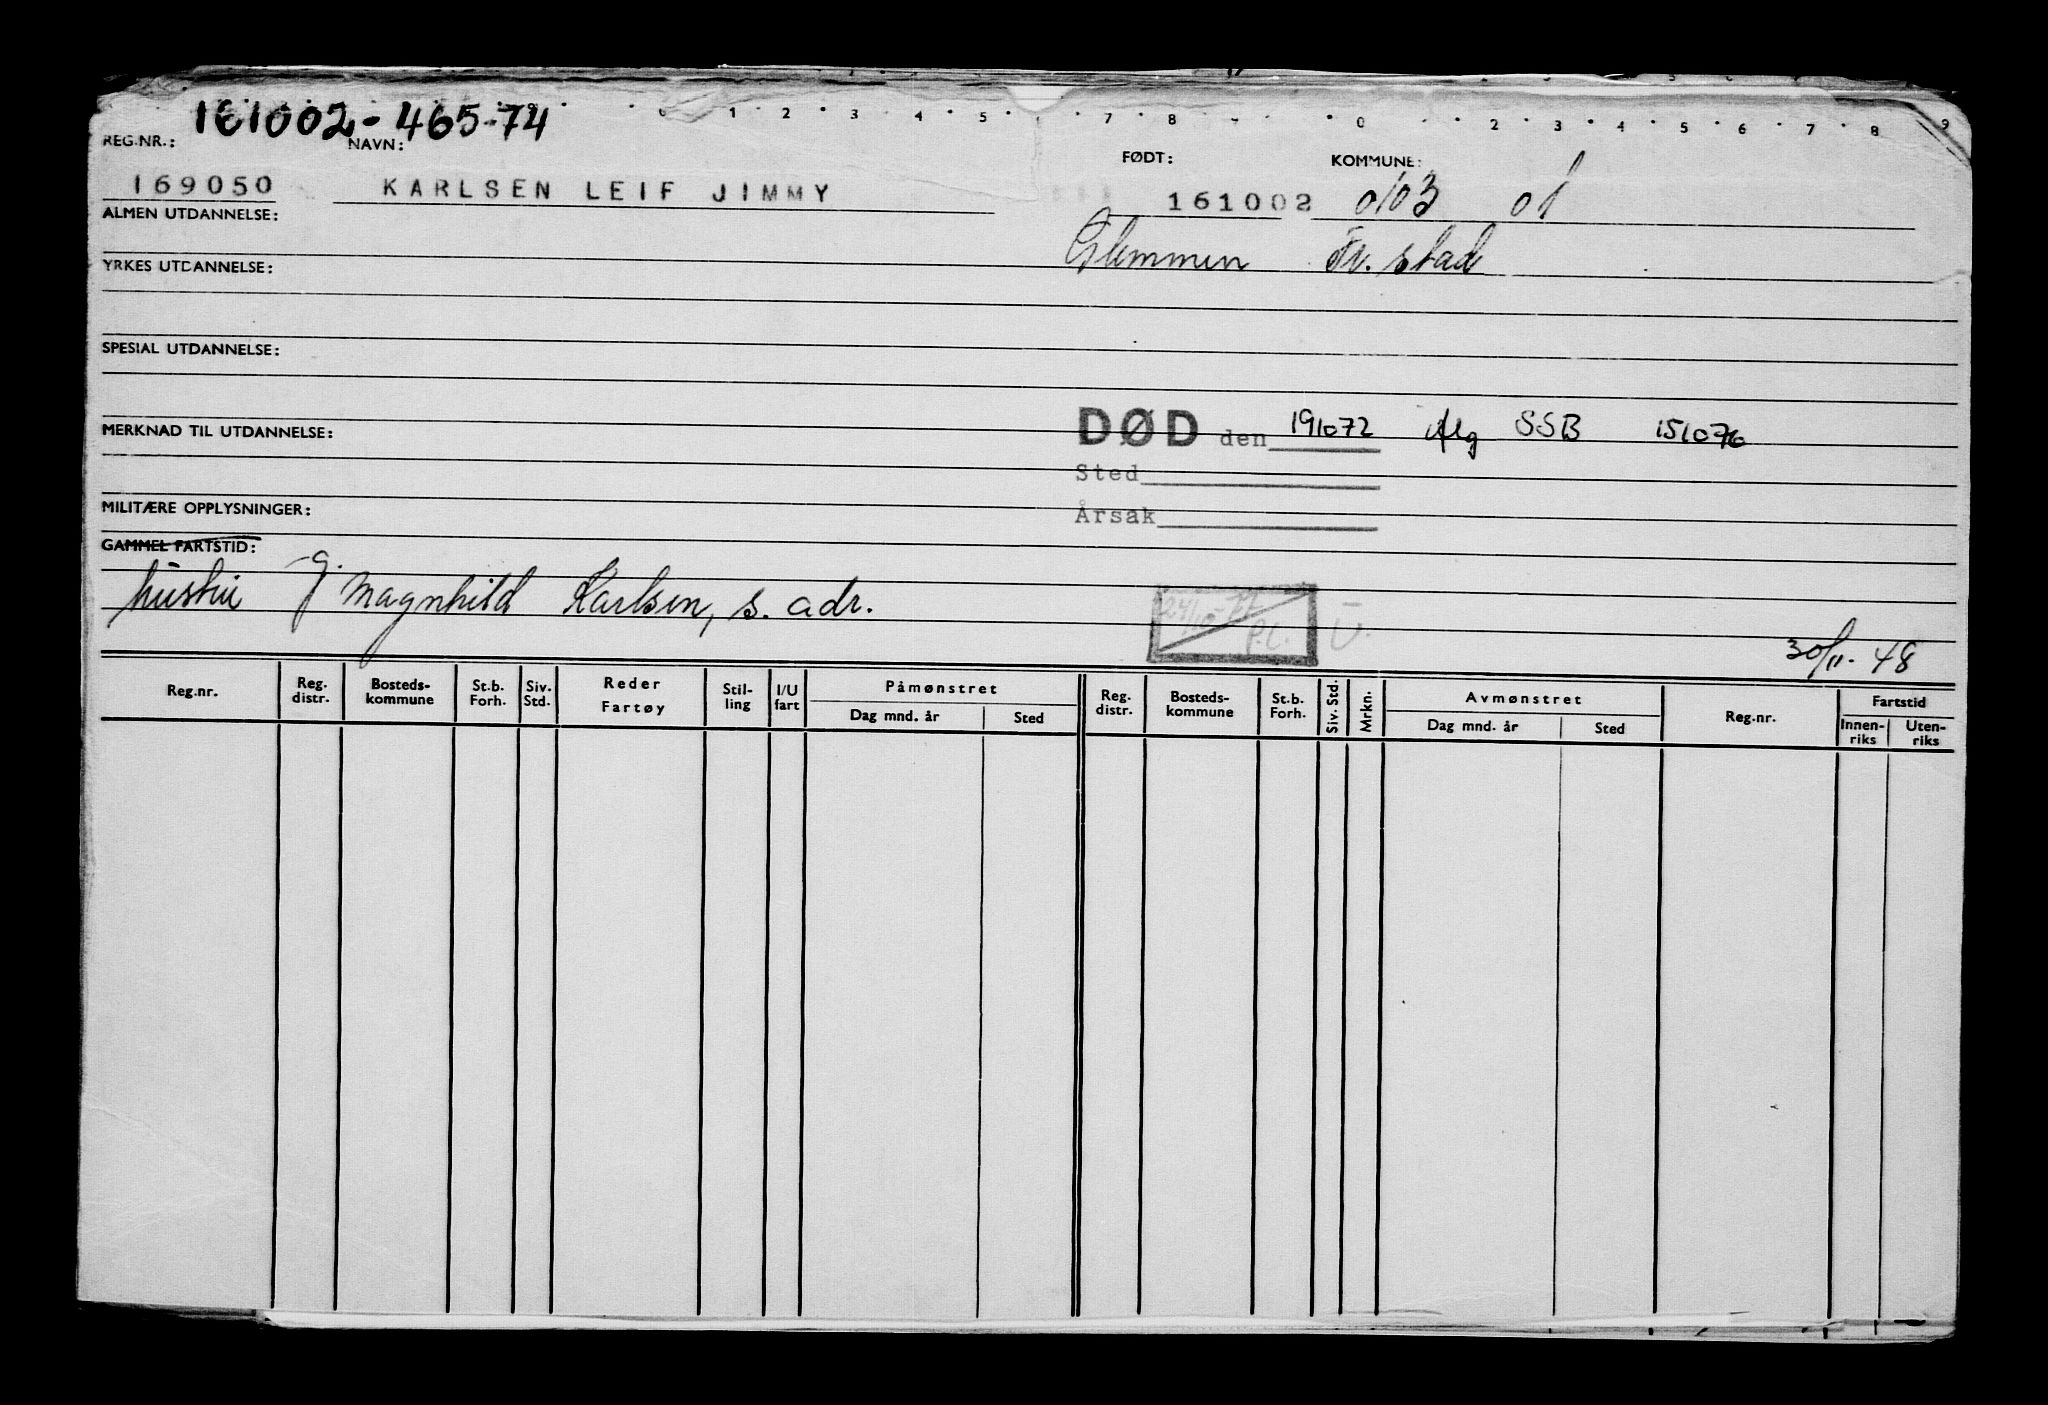 161002-465-74
0 1 2 3 4 5 7 8 0 2 3 4 5 6 7 8 9
REG.NR.: NAVN: FØDT: KOMMUNE:
169050 KARLSEN LEIF JIMMY 161002 0103 01
ALMEN UTDANNELSE: Glemmen Fr.stad
YRKES UTDANNELSE:
SPESIAL UTDANNELSE:
MERKNAD TIL UTDANNELSE: DØD den 191072 SSB 151076
Sted
MILITÆRE OPPLYSNINGER: Årsak
GAMMEL FARTSTID:
hustru g. Magnhild Karlsen, s. adr.
24/10-77 P.L. U.
30/11-48
Reg.nr. Reg. distr. Bosteds-kommune St.b. Forh. Siv. Std. Reder Fartøy Stil-ling I/U fart Påmønstret Dag mnd. år Sted Reg. distr. Bosteds-kommune St.b. Forh. Siv. Std. Mrkn. Avmønstret Dag mnd. år Sted Reg.nr. Fartstid Innen-riks Uten-riks